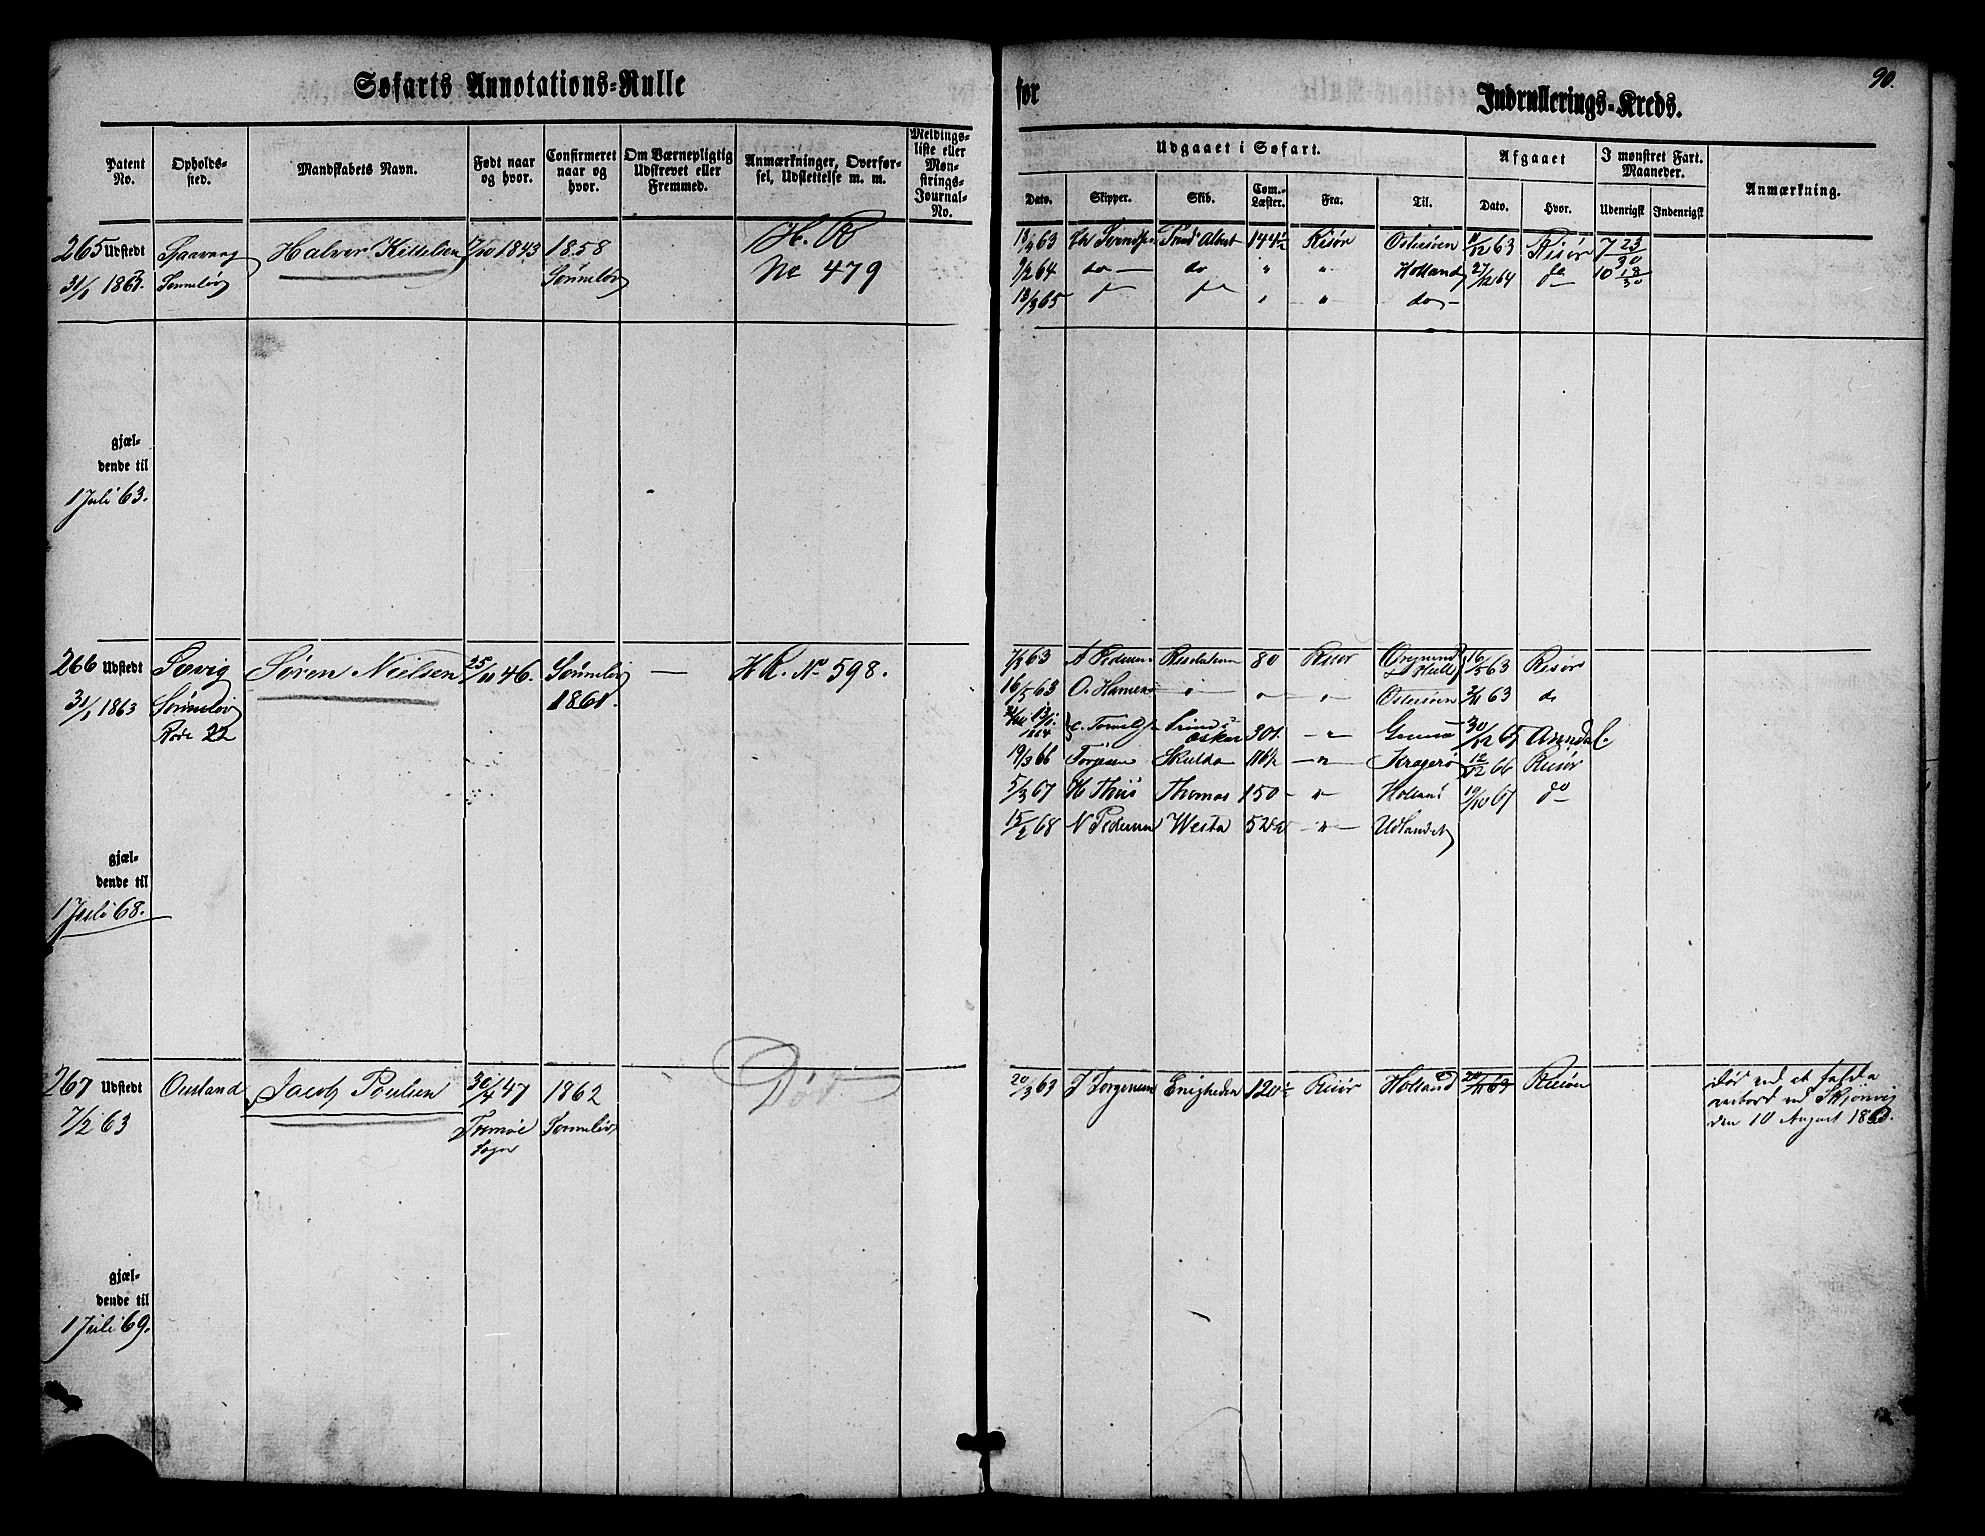 Søfarts Annotations-Rulle
for
Indrullerings-Kreds.
90.
Patent No.
Opholdssted.
Mandskabets Navn.
Født naar og hvor.
Confirmeret naar og hvor.
Om Værnepligtig Udskrevet eller Fremmed.
Anmærkninger, Overførsel, Udslettelse m. m.
Meldingsliste eller Mønstrings-Journal-No.
Udgaaet i Søfart.
Afgaaet
I mønstret Fart. Maaneder.
Anmærkning.
Dato. Skipper. Skib. Com.-Læster. Fra. Til. Dato. Hvor. Udenrigsk Indenrigsk
265 Udstedt Halvor Kittelsen 7/10 1843 1858 H. R
31/1 1863. Sønneløv Sønneløv No 479
13/4 63 144½ Risør Østersøen 11/12 63 Risør 7 23/30
9/2 64 do do " " Holland 27/12 64 do 10 18/30
13/3 65 " " do
gjældende til
1 Juli 63.
266 Udstedt Søvig Søren Nielsen 25/11 46. Sønneløv — H R. No 598.
31/1 1863 Sønneløv 1861.
Rode 22
7/3 63 A Pedersen 80 Risør 16/5 63 Risør
16/5 63 O. Hansen " " " Østersøen 2/11 63 do
1864 Prinds Oskar 301. " 30/12 65 Arendal.
19/3 66 Torjesen Skulda 116½ " Kragerø 12/12 66 Risør
5/3 67 H Thiis Thomas 150 " Holland 19/10 67 do
15/2 68 N Pedersen Westa 52 " Udlandet
gjældende til
1 Juli 68.
267 Udstedt Ousland Jacob Poulsen 30/4 47 1862 Død
7/2 63 Tromøe Sogn Sønneløv
20/3 63 J Jørgensen Enigheden 120½ Risør Holland 20/11 63 Risør
død ved at falde
overbord ved
den 10 August 1863.
gjældende til
1 Juli 69.